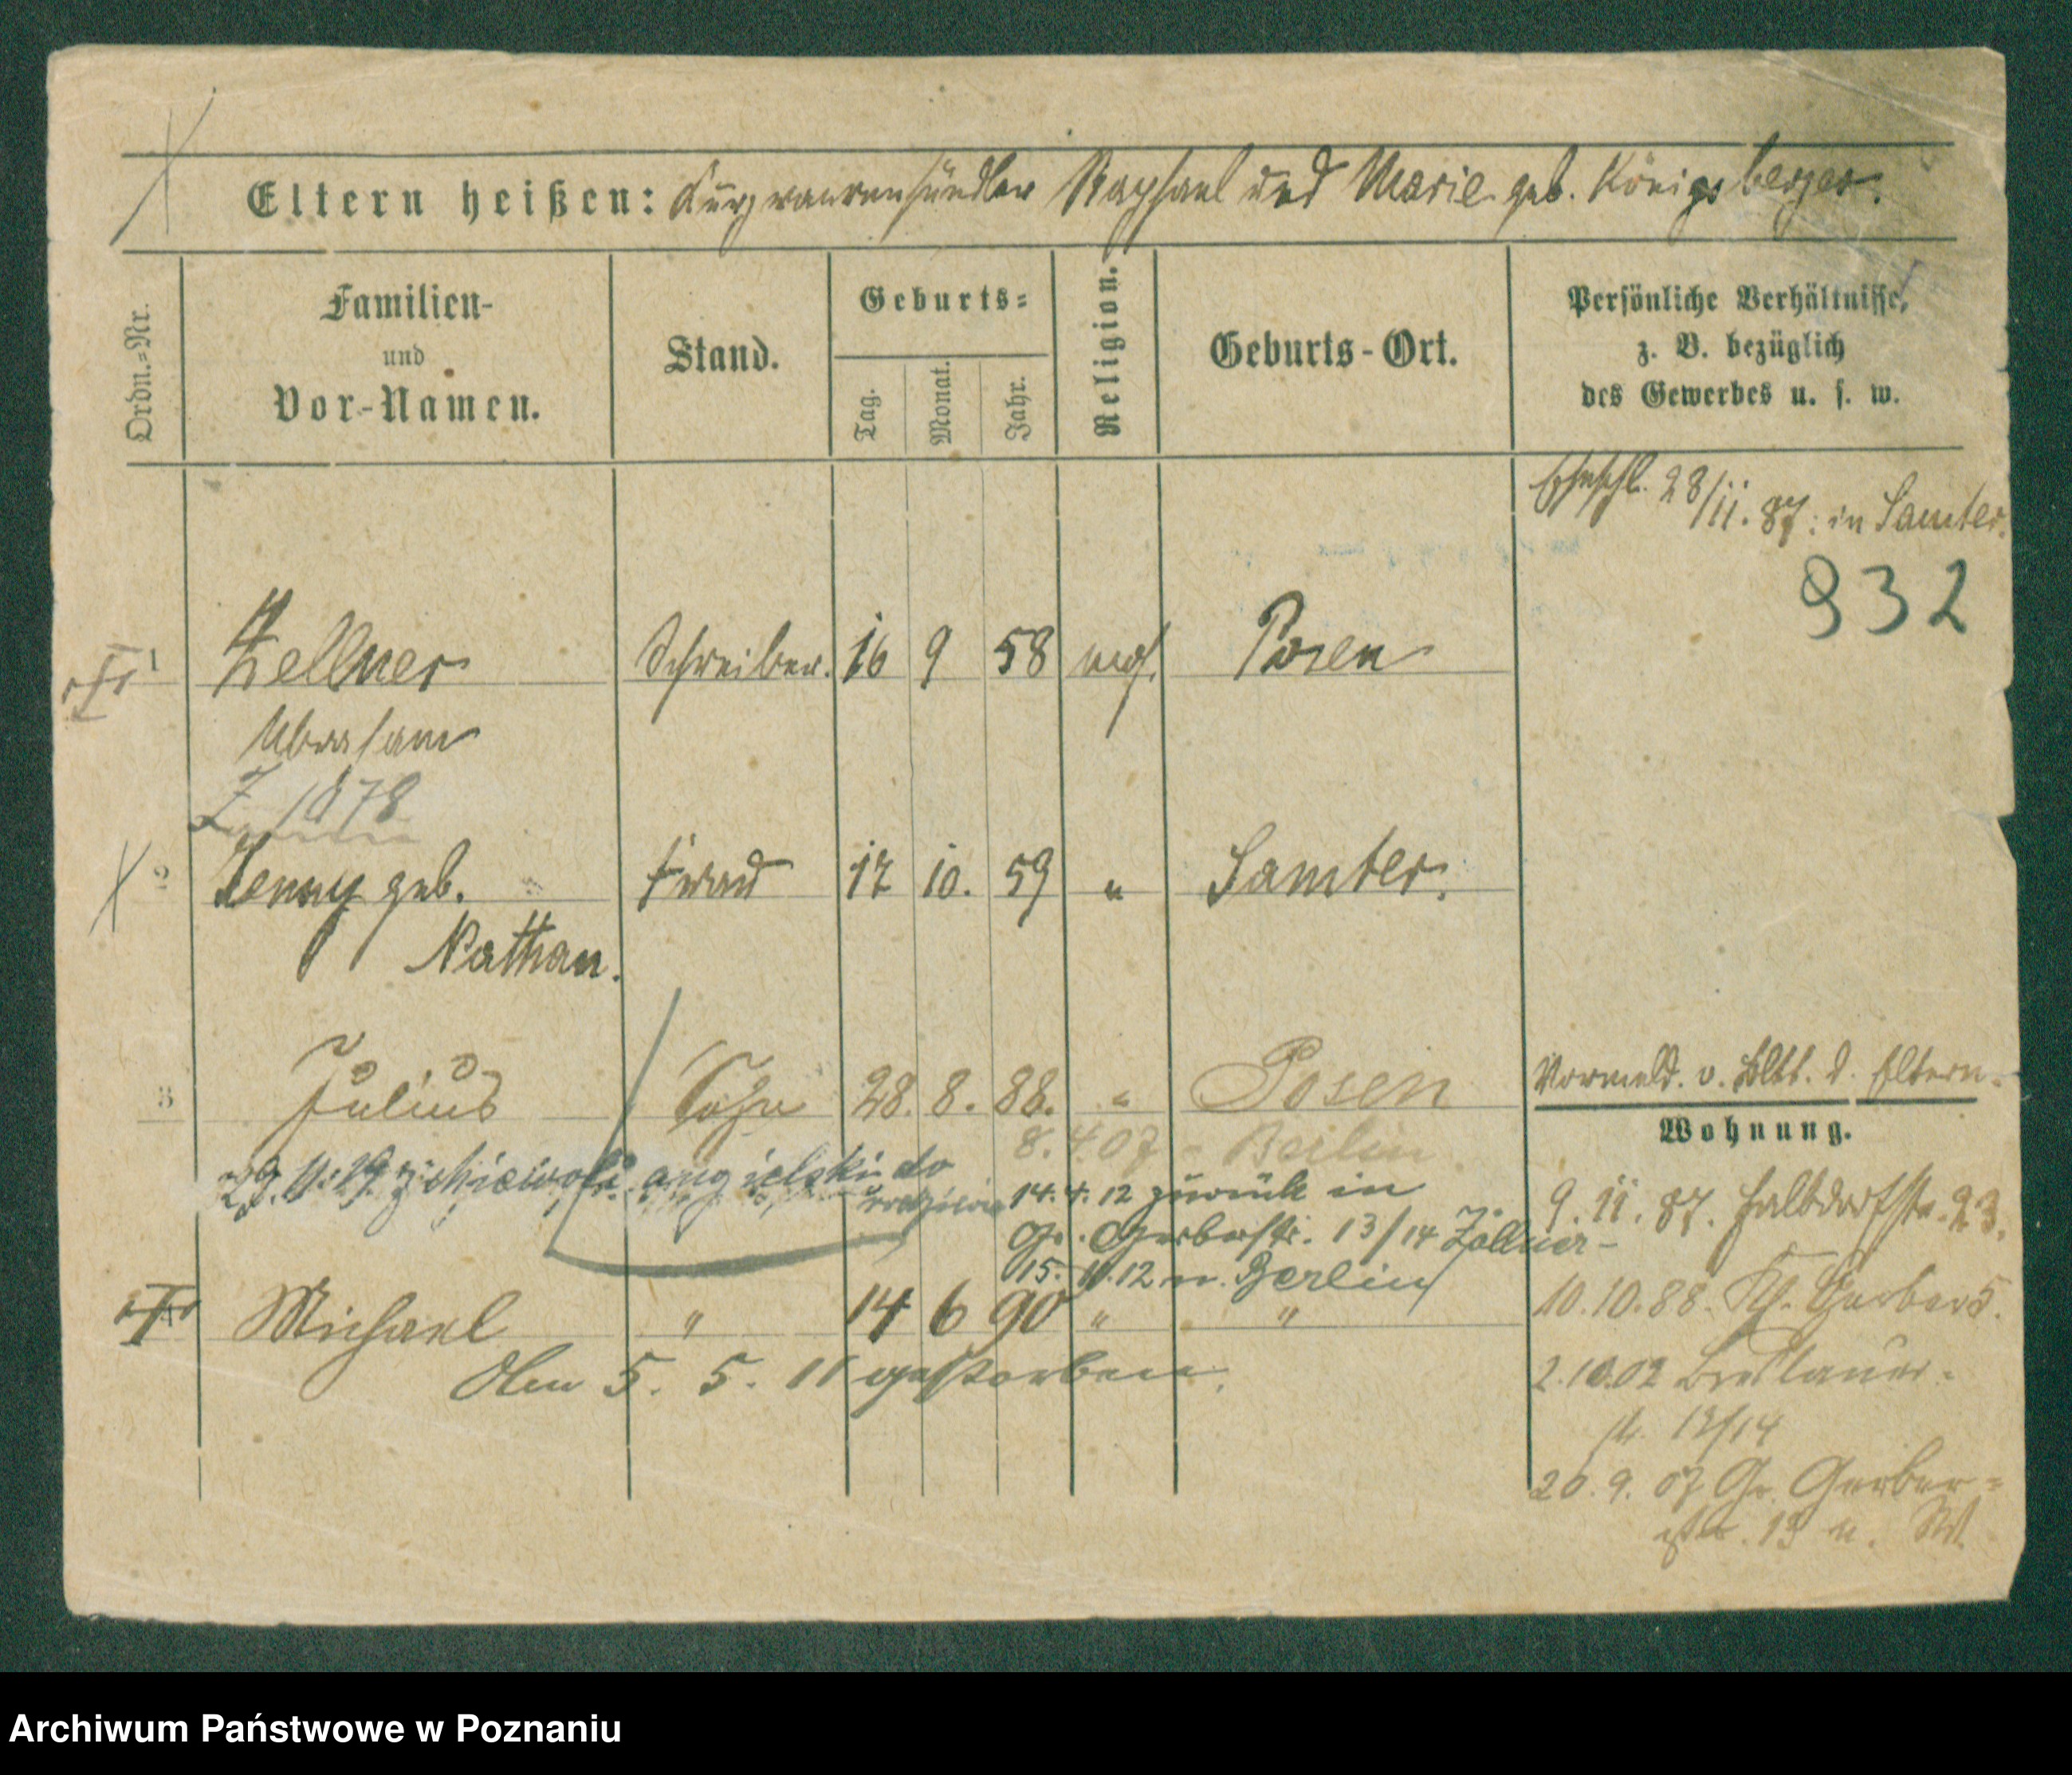 Eltern heißen: Kurzwaarenhändler Raphael und Marie geb. Königsberger.
Ordn.=Nr.
Familien-
und
Vor-Namen.
Stand.
Geburts=
Tag.
Monat.
Jahr.
Religion.
Geburts-Ort.
Persönliche Verhältnisse,
z. B. bezüglich
des Gewerbes u. s. w.
Eheschl. 28/11. 87. in Samter.
932
1 Zellner Schreiber. 16 9 58 mos. Posen
Abraham
Z 1878
2 Jenny geb. Frau 17 10. 59 " Samter.
Nathan.
3 Julius Sohn 28. 8. 88. " Posen
Vormeld. v. Bltt. d. Eltern.
8. 4. 07 - Berlin
Wohnung.
29. angielski do
14. 4. 12 zurück in
Gr. Gerberstr. 13/14 Zöllner-
15. 11. 12 n. Berlin
Michael " 14 6 90 " "
Am 5. 5. 11 gestorben.
9. 11. 87. Halbdorfstr. 23.
10. 10. 88. Kl. Gerber 5.
2. 10. 02 Breslauer-
str. 13/14
20. 9. 07 Gr. Gerber=
str. 13
Archiwum Państwowe w Poznaniu